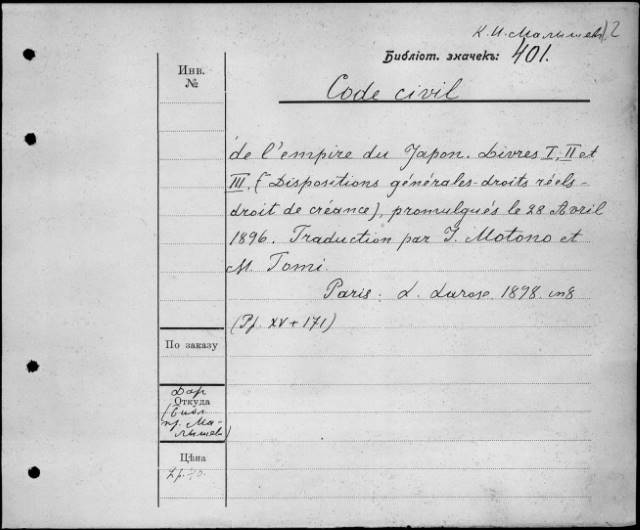 К. И. Малышев 12
Библіот. значекъ: 401.
Инв.
№
Code civil
de l'empire du Japon. Livres I, II et
III, (Dispositions générales-droits réels-
droit de créance), promulgués le 28 Avril
1896. Traduction par I. Motono et
M. Tomi.
Paris: L. Larose. 1898. in 8
(Pp. XV + 171)
По заказу
Дар
Откуда
(Библ
пр. Ма-
лышева)
Цѣна
2 р.